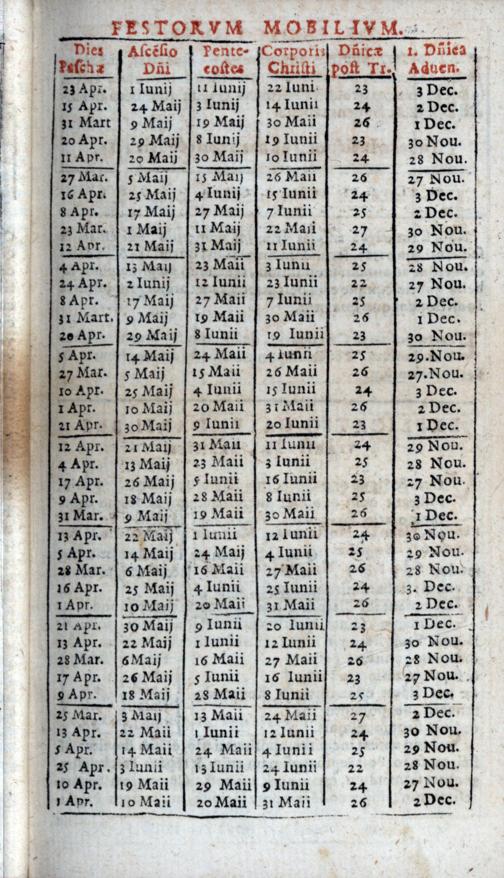 FESTORVM MOBILIVM.
Dies Ascēsio Pente- Corporis Dñicæ 1. Dñica
Paschæ Dñi costes Christi post Tr. Aduen.
23 Apr. 1 Iunij 11 Iunij 22 Iunij 23 3 Dec.
15 Apr. 24 Maij 3 Iunij 14 Iunii 24 2 Dec.
31 Mart 9 Maij 19 Maij 30 Maii 26 1 Dec.
20 Apr. 29 Maij 8 Iunij 19 Iunii 23 30 Nou.
11 Apr. 20 Maij 30 Maij 10 Iunii 24 28 Nou.
27 Mar. 5 Maij 15 Maij 26 Maii 26 27 Nou.
16 Apr. 25 Maij 4 Iunij 15 Iunii 24 3 Dec.
8 Apr. 17 Maij 27 Maij 7 Iunii 25 2 Dec.
23 Mar. 1 Maij 11 Maij 22 Maii 27 30 Nou.
12 Apr. 21 Maij 31 Maij 11 Iunii 24 29 Nou.
4 Apr. 13 Maij 23 Maii 3 Iunii 25 28 Nou.
24 Apr. 2 Iunij 12 Iunii 23 Iunii 22 27 Nou.
8 Apr. 17 Maij 27 Maii 7 Iunii 25 2 Dec.
31 Mart. 9 Maij 19 Maii 30 Maii 26 1 Dec.
20 Apr. 29 Maij 8 Iunii 19 Iunii 23 30 Nou.
5 Apr. 14 Maij 24 Maii 4 Iunii 25 29.Nou.
27 Mar. 5 Maij 15 Maii 26 Maii 26 27.Nou.
10 Apr. 25 Maij 4 Iunii 15 Iunii 24 3 Dec.
1 Apr. 10 Maij 20 Maii 31 Maii 26 2 Dec.
21 Apr. 30 Maij 9 Iunii 20 Iunii 23 1 Dec.
12 Apr. 21 Maij 31 Maii 11 Iunii 24 29 Nou.
4 Apr. 13 Maij 23 Maii 3 Iunii 25 28 Nou.
17 Apr. 26 Maij 5 Iunii 16 Iunii 23 27 Nou.
9 Apr. 18 Maij 28 Maii 8 Iunii 25 3 Dec.
31 Mar. 9 Maij 19 Maii 30 Maii 26 1 Dec.
13 Apr. 22 Maij 1 Iunii 12 Iunii 24 30 Nou.
5 Apr. 14 Maij 24 Maij 4 Iunii 25 29 Nou.
28 Mar. 6 Maij 16 Maii 27 Maii 26 28 Nou.
16 Apr. 25 Maij 4 Iunii 25 Iunii 24 3. Dec.
1 Apr. 10 Maij 20 Maii 31 Maii 26 2 Dec.
21 Apr. 30 Maij 9 Iunii 20 Iunii 23 1 Dec.
13 Apr. 22 Maij 1 Iunii 12 Iunii 24 30 Nou.
28 Mar. 6 Maij 16 Maii 27 Maii 26 28 Nou.
17 Apr. 26 Maij 5 Iunii 16 Iunii 23 27 Nou.
9 Apr. 18 Maij 28 Maii 8 Iunii 25 3 Dec.
25 Mar. 3 Maij 13 Maii 24 Maii 27 2 Dec.
13 Apr. 22 Maii 1 Iunii 12 Iunii 24 30 Nou.
5 Apr. 14 Maii 24 Maii 4 Iunii 25 29 Nou.
25 Apr. 3 Iunii 13 Iunii 24 Iunii 22 28 Nou.
10 Apr. 19 Maii 29 Maii 9 Iunii 24 27 Nou.
1 Apr. 10 Maii 20 Maii 31 Maii 26 2 Dec.